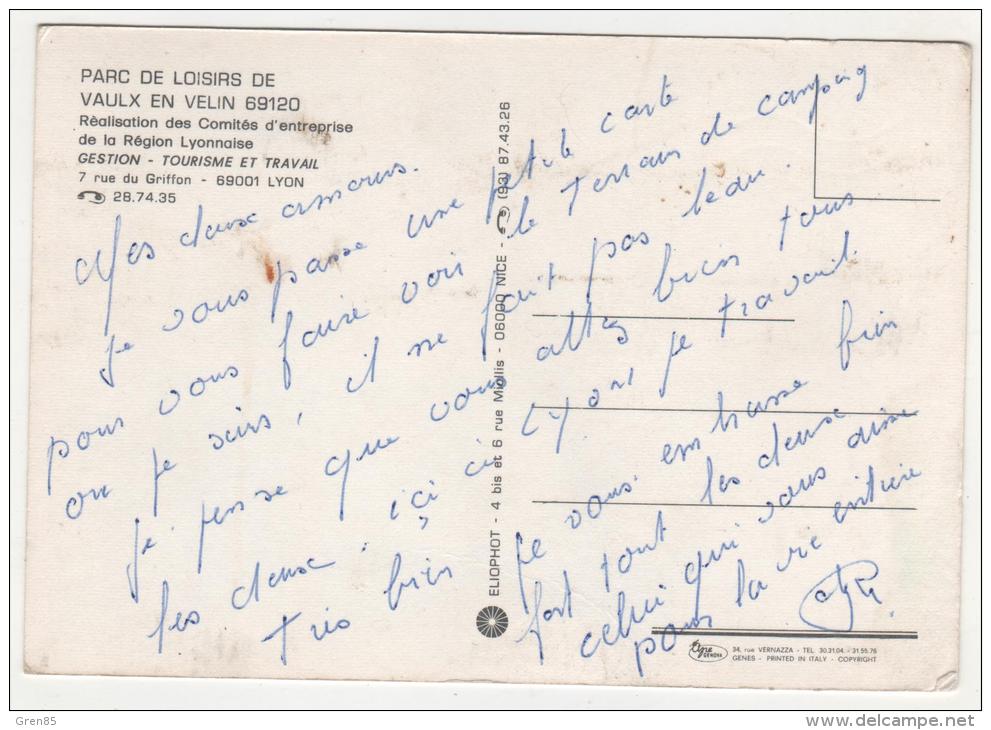 PARC DE LOISIRS DE
VAULX EN VELIN 69120
Rèalisation des Comités d'entreprise
de la Région Lyonnaise
GESTION - TOURISME ET TRAVAIL
7 rue du Griffon - 69001 LYON
28.74.35
Mes deux amours.
je vous passe une petite carte
pour vous faire voir le terrain de camping
ou je suis, il ne fait pas beau.
je pense que vous allez bien tous
les deux ici à Lyon je travail
très bien
je vous embrasse bien
fort tout les deux
celui qui vous aime
pour la vie entière
ELIOPHOT - 4 bis et 6 rue Miollis - 06000 NICE - (93) 87.43.26
GENOVA
34, rue VERNAZZA - TEL. 30.31.04 - 31.55.76
GENES - PRINTED IN ITALY - COPYRIGHT
Gren85
www.delcampe.net